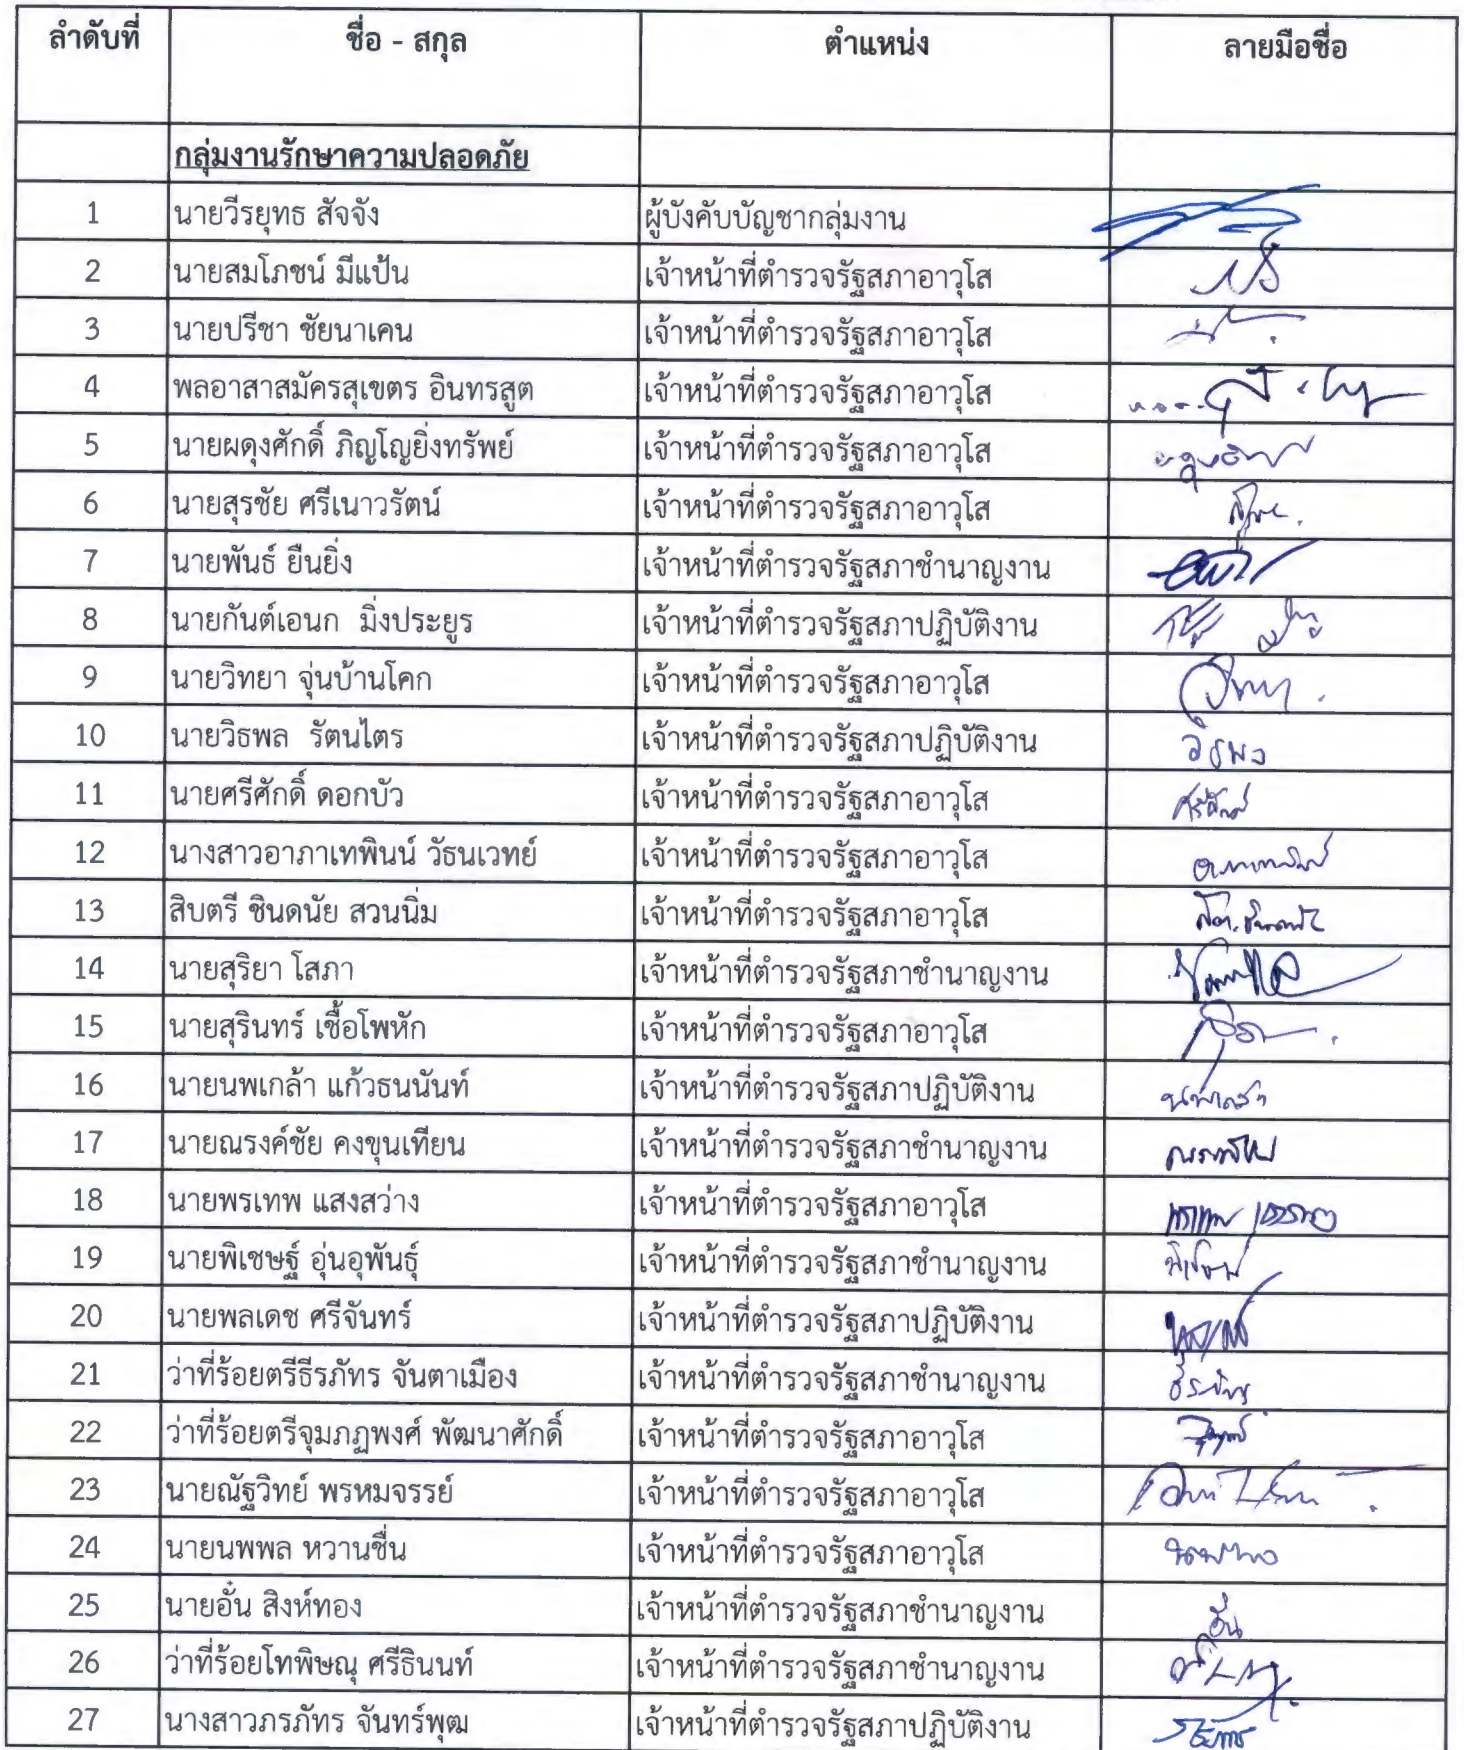 ลำดับที่ ชื่อ - สกุล ตำแหน่ง ลายมือชื่อ
กลุ่มงานรักษาความปลอดภัย
1 นายวีรยุทธ สัจจัง ผู้บังคับบัญชากลุ่มงาน
2 นายสมโภชน์ มีแป้น เจ้าหน้าที่ตำรวจรัฐสภาอาวุโส
3 นายปรีชา ชัยนาเคน เจ้าหน้าที่ตำรวจรัฐสภาอาวุโส
4 พลอาสาสมัครสุเขตร อินทรสูต เจ้าหน้าที่ตำรวจรัฐสภาอาวุโส
5 นายผดุงศักดิ์ ภิญโญยิ่งทรัพย์ เจ้าหน้าที่ตำรวจรัฐสภาอาวุโส
6 นายสุรชัย ศรีเนาวรัตน์ เจ้าหน้าที่ตำรวจรัฐสภาอาวุโส
7 นายพันธ์ ยืนยิ่ง เจ้าหน้าที่ตำรวจรัฐสภาชำนาญงาน
8 นายกันต์เอนก มิ่งประยูร เจ้าหน้าที่ตำรวจรัฐสภาปฏิบัติงาน
9 นายวิทยา จุ่นบ้านโคก เจ้าหน้าที่ตำรวจรัฐสภาอาวุโส
10 นายวิธพล รัตนไตร เจ้าหน้าที่ตำรวจรัฐสภาปฏิบัติงาน
11 นายศรีศักดิ์ ดอกบัว เจ้าหน้าที่ตำรวจรัฐสภาอาวุโส
12 นางสาวอาภาเทพินน์ วัธนเวทย์ เจ้าหน้าที่ตำรวจรัฐสภาอาวุโส
13 สิบตรี ชินดนัย สวนนิ่ม เจ้าหน้าที่ตำรวจรัฐสภาอาวุโส
14 นายสุริยา โสภา เจ้าหน้าที่ตำรวจรัฐสภาชำนาญงาน
15 นายสุรินทร์ เชื้อโพหัก เจ้าหน้าที่ตำรวจรัฐสภาอาวุโส
16 นายนพเกล้า แก้วธนนันท์ เจ้าหน้าที่ตำรวจรัฐสภาปฏิบัติงาน
17 นายณรงค์ชัย คงขุนเทียน เจ้าหน้าที่ตำรวจรัฐสภาชำนาญงาน
18 นายพรเทพ แสงสว่าง เจ้าหน้าที่ตำรวจรัฐสภาอาวุโส
19 นายพิเชษฐ์ อุ่นอุพันธุ์ เจ้าหน้าที่ตำรวจรัฐสภาชำนาญงาน
20 นายพลเดช ศรีจันทร์ เจ้าหน้าที่ตำรวจรัฐสภาปฏิบัติงาน
21 ว่าที่ร้อยตรีธีรภัทร จันตาเมือง เจ้าหน้าที่ตำรวจรัฐสภาชำนาญงาน
22 ว่าที่ร้อยตรีจุมภฏพงศ์ พัฒนาศักดิ์ เจ้าหน้าที่ตำรวจรัฐสภาอาวุโส
23 นายณัฐวิทย์ พรหมจรรย์ เจ้าหน้าที่ตำรวจรัฐสภาอาวุโส
24 นายนพพล หวานชื่น เจ้าหน้าที่ตำรวจรัฐสภาอาวุโส
25 นายอั๋น สิงห์ทอง เจ้าหน้าที่ตำรวจรัฐสภาชำนาญงาน
26 ว่าที่ร้อยโทพิษณุ ศรีธินนท์ เจ้าหน้าที่ตำรวจรัฐสภาชำนาญงาน
27 นางสาวภรภัทร จันทร์พุฒ เจ้าหน้าที่ตำรวจรัฐสภาปฏิบัติงาน